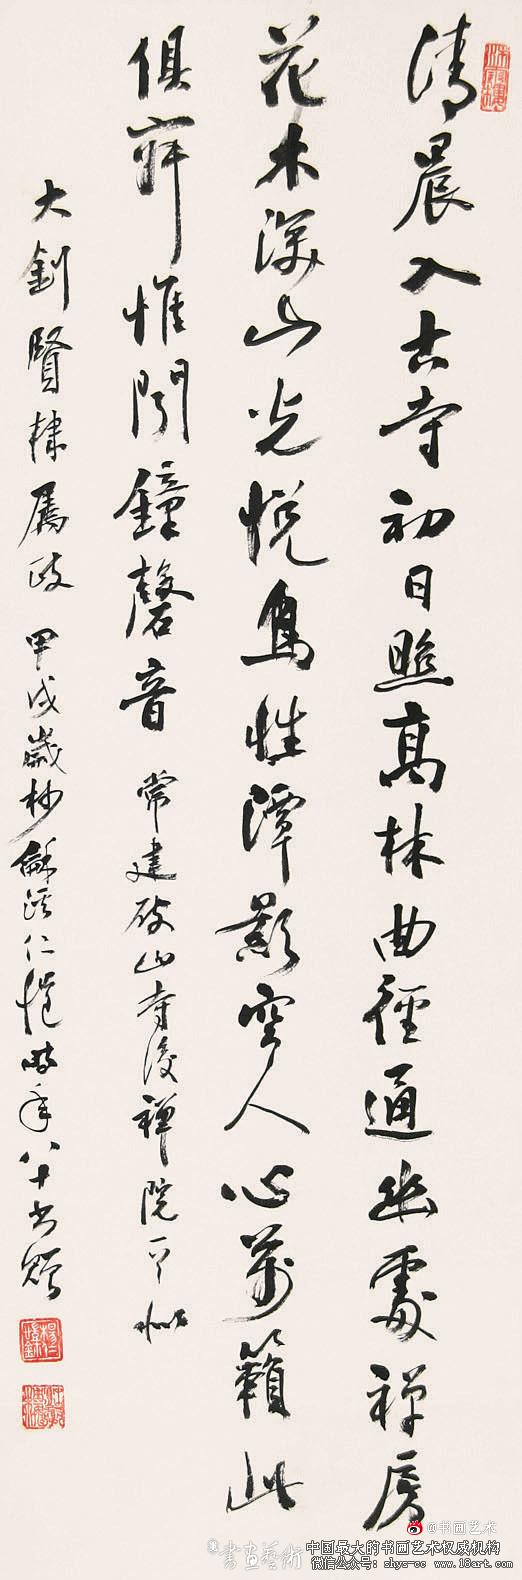 清晨入古寺初日照高林曲徑通幽處禅房
花木深山光悦鳥性潭影空人心萬籟此
俱寂惟聞鐘磬音 常建破山寺後禅院
大釗賢棣屬政 甲戌歲杪龢溪仁愷時年八十書贈
@书画艺术
書畫藝術
中国最大的书画艺术权威机构
微信公众号：shys-cc www.18art.com